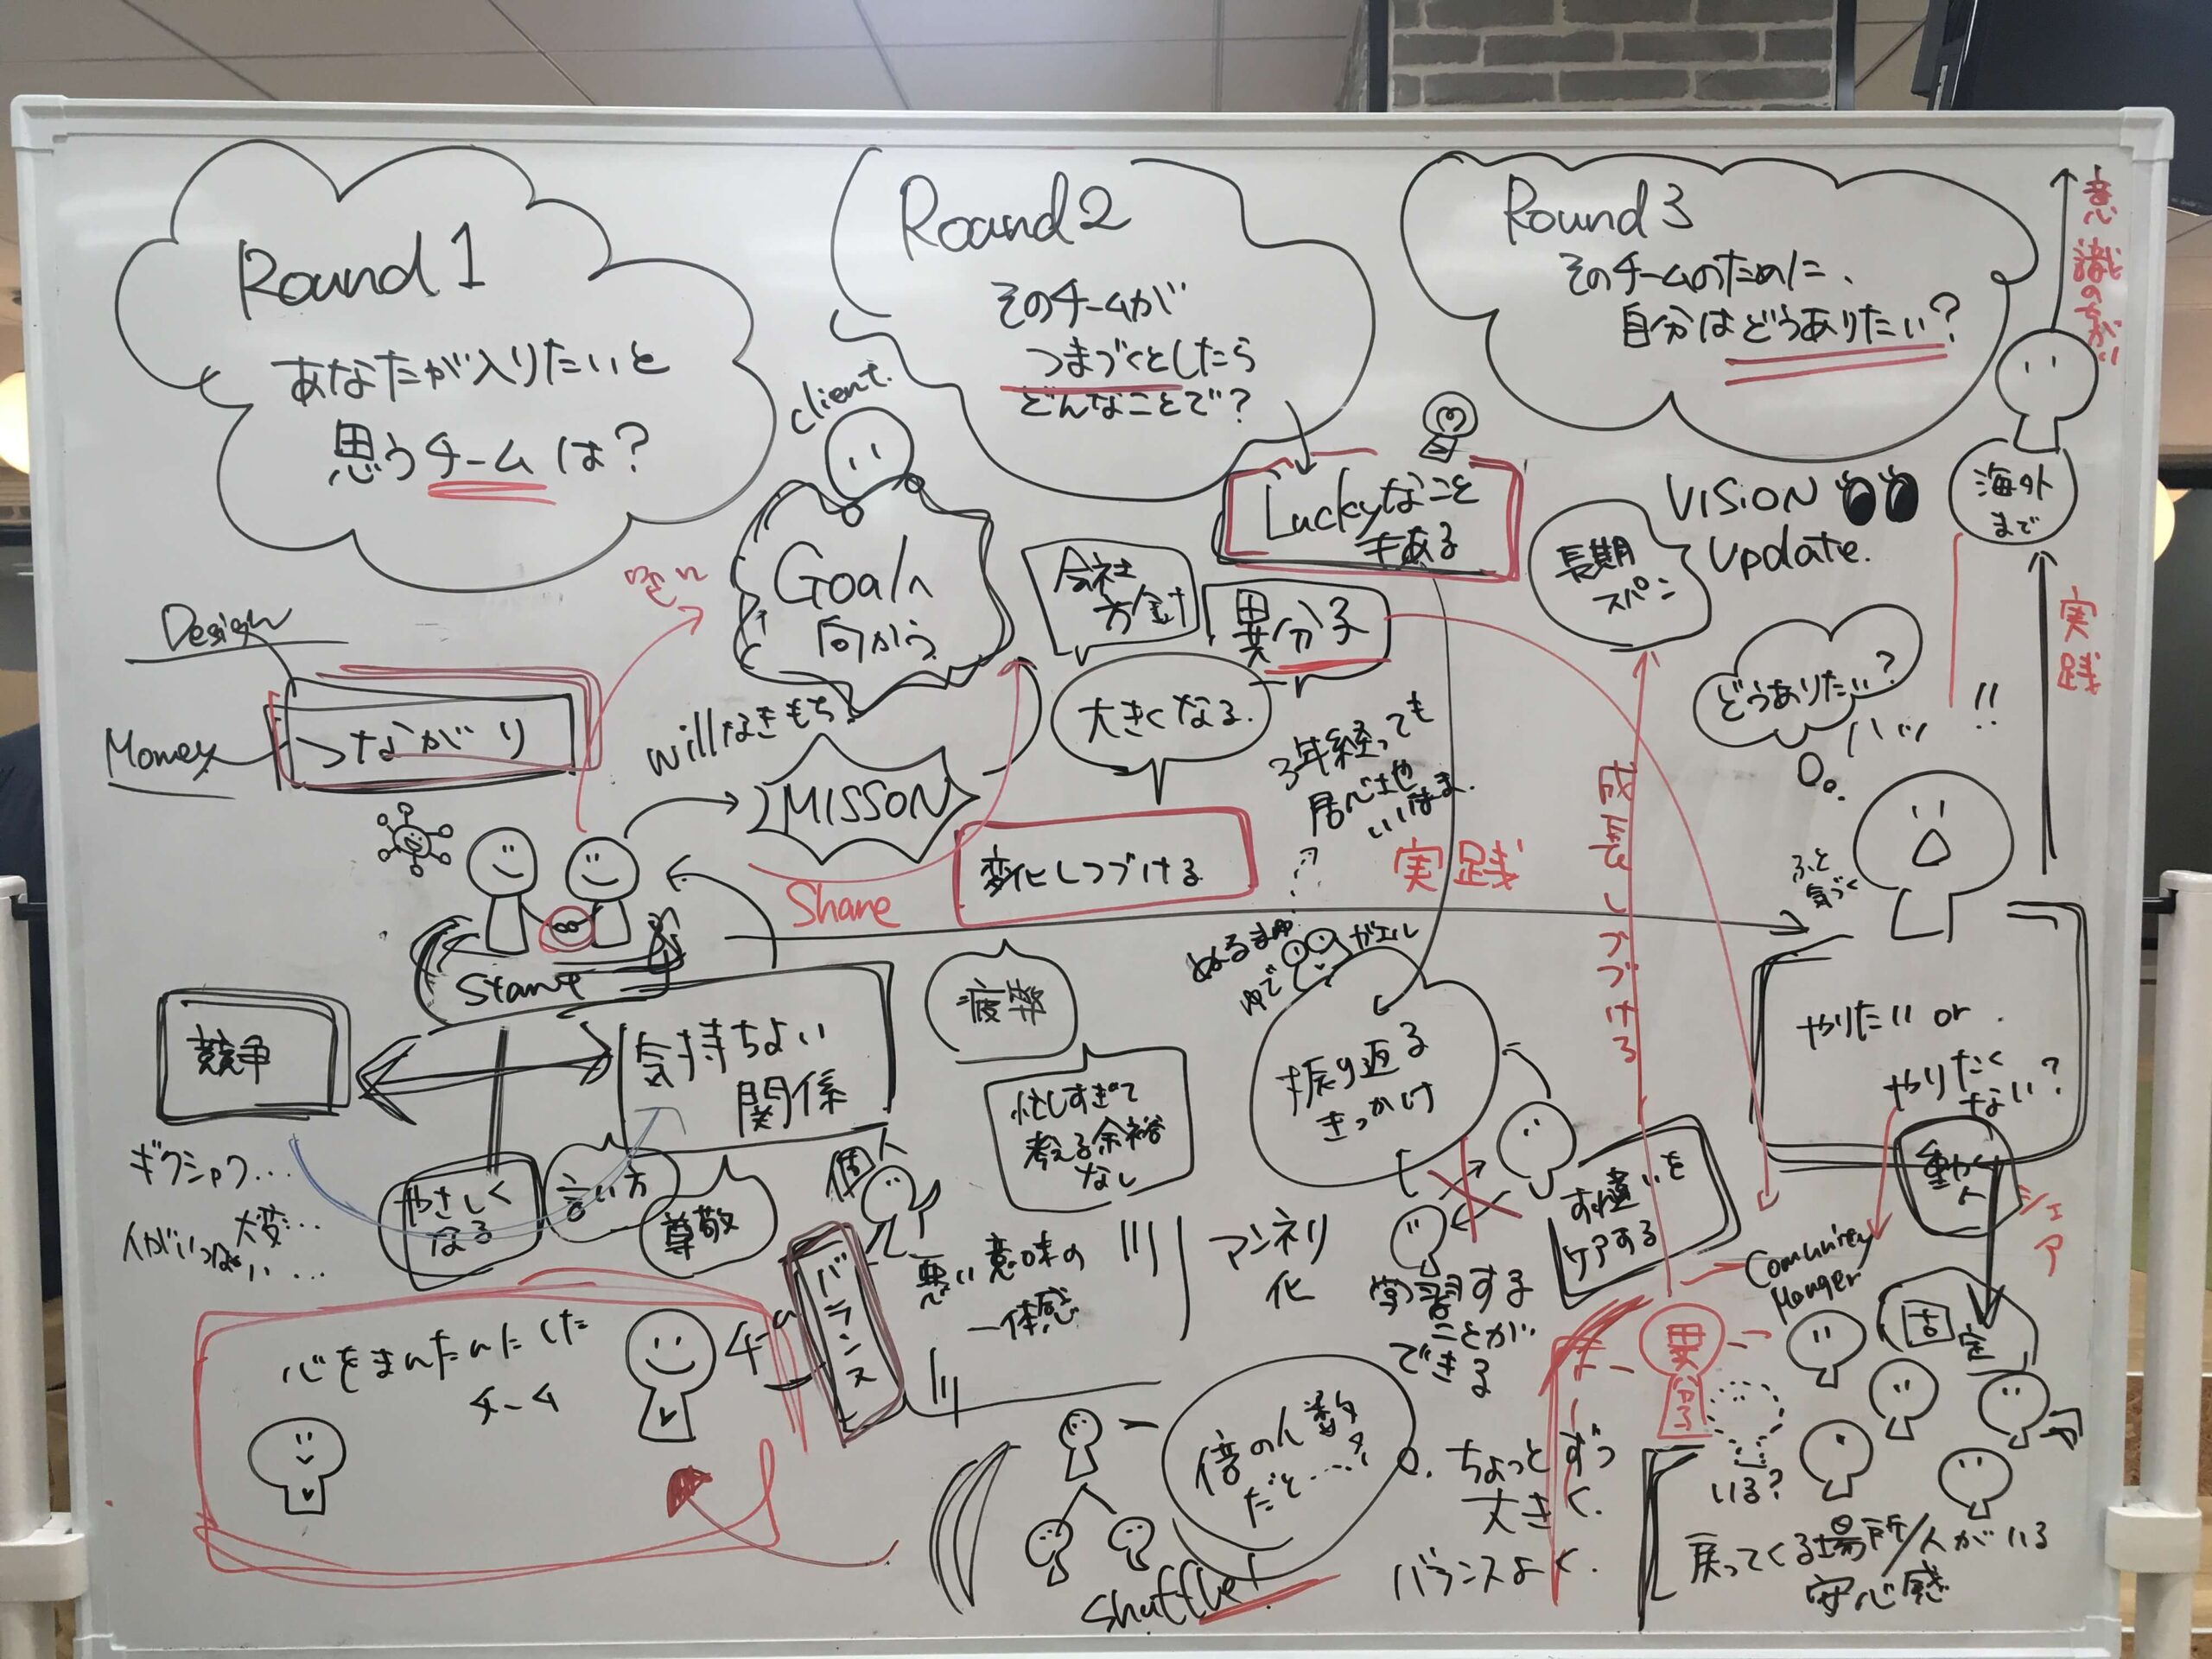 Round 1
あなたが入りたいと
思うチームは?
Round2
そのチームが
つまづくとしたら
どんなことで?
Round 3
そのチームのために、
自分はどうありたい?
意識のちがい
client.
Goalへ
向かう
Luckyなこと
もある
会社
方針
異分子
長期
スパン
VISION
update.
海外
まで
実践
Design
Money
つながり
willなきもち
MISSON
大きくなる.
3年経っても
居心地や
いいまま.
どうありたい?
ハッ
!!
ふと
気づく
成長しつづける
Share
変化しつづける
実践
Stance
ゆで
ガエル
競争
気持ちよい
関係
疲弊
忙しすぎて
考える余裕
なし
振り返る
きっかけ
やりたい or
やりたく
ない?
ギクシャク...
大変...
やさしく
なる
言い方
尊敬
個人
バランス
チーム
悪い意味の
一体感
マンネリ
化
学習する
ことが
できる
す違いを
ケアする
動く
人
シェア
Community
Manger
固定
異分子
心をまんたんにした
チーム
倍の人数
だと....?
ちょっとずつ
大きく.
バランスよく.
shuffle!
いる?
戻ってくる場所/人がいる
安心感